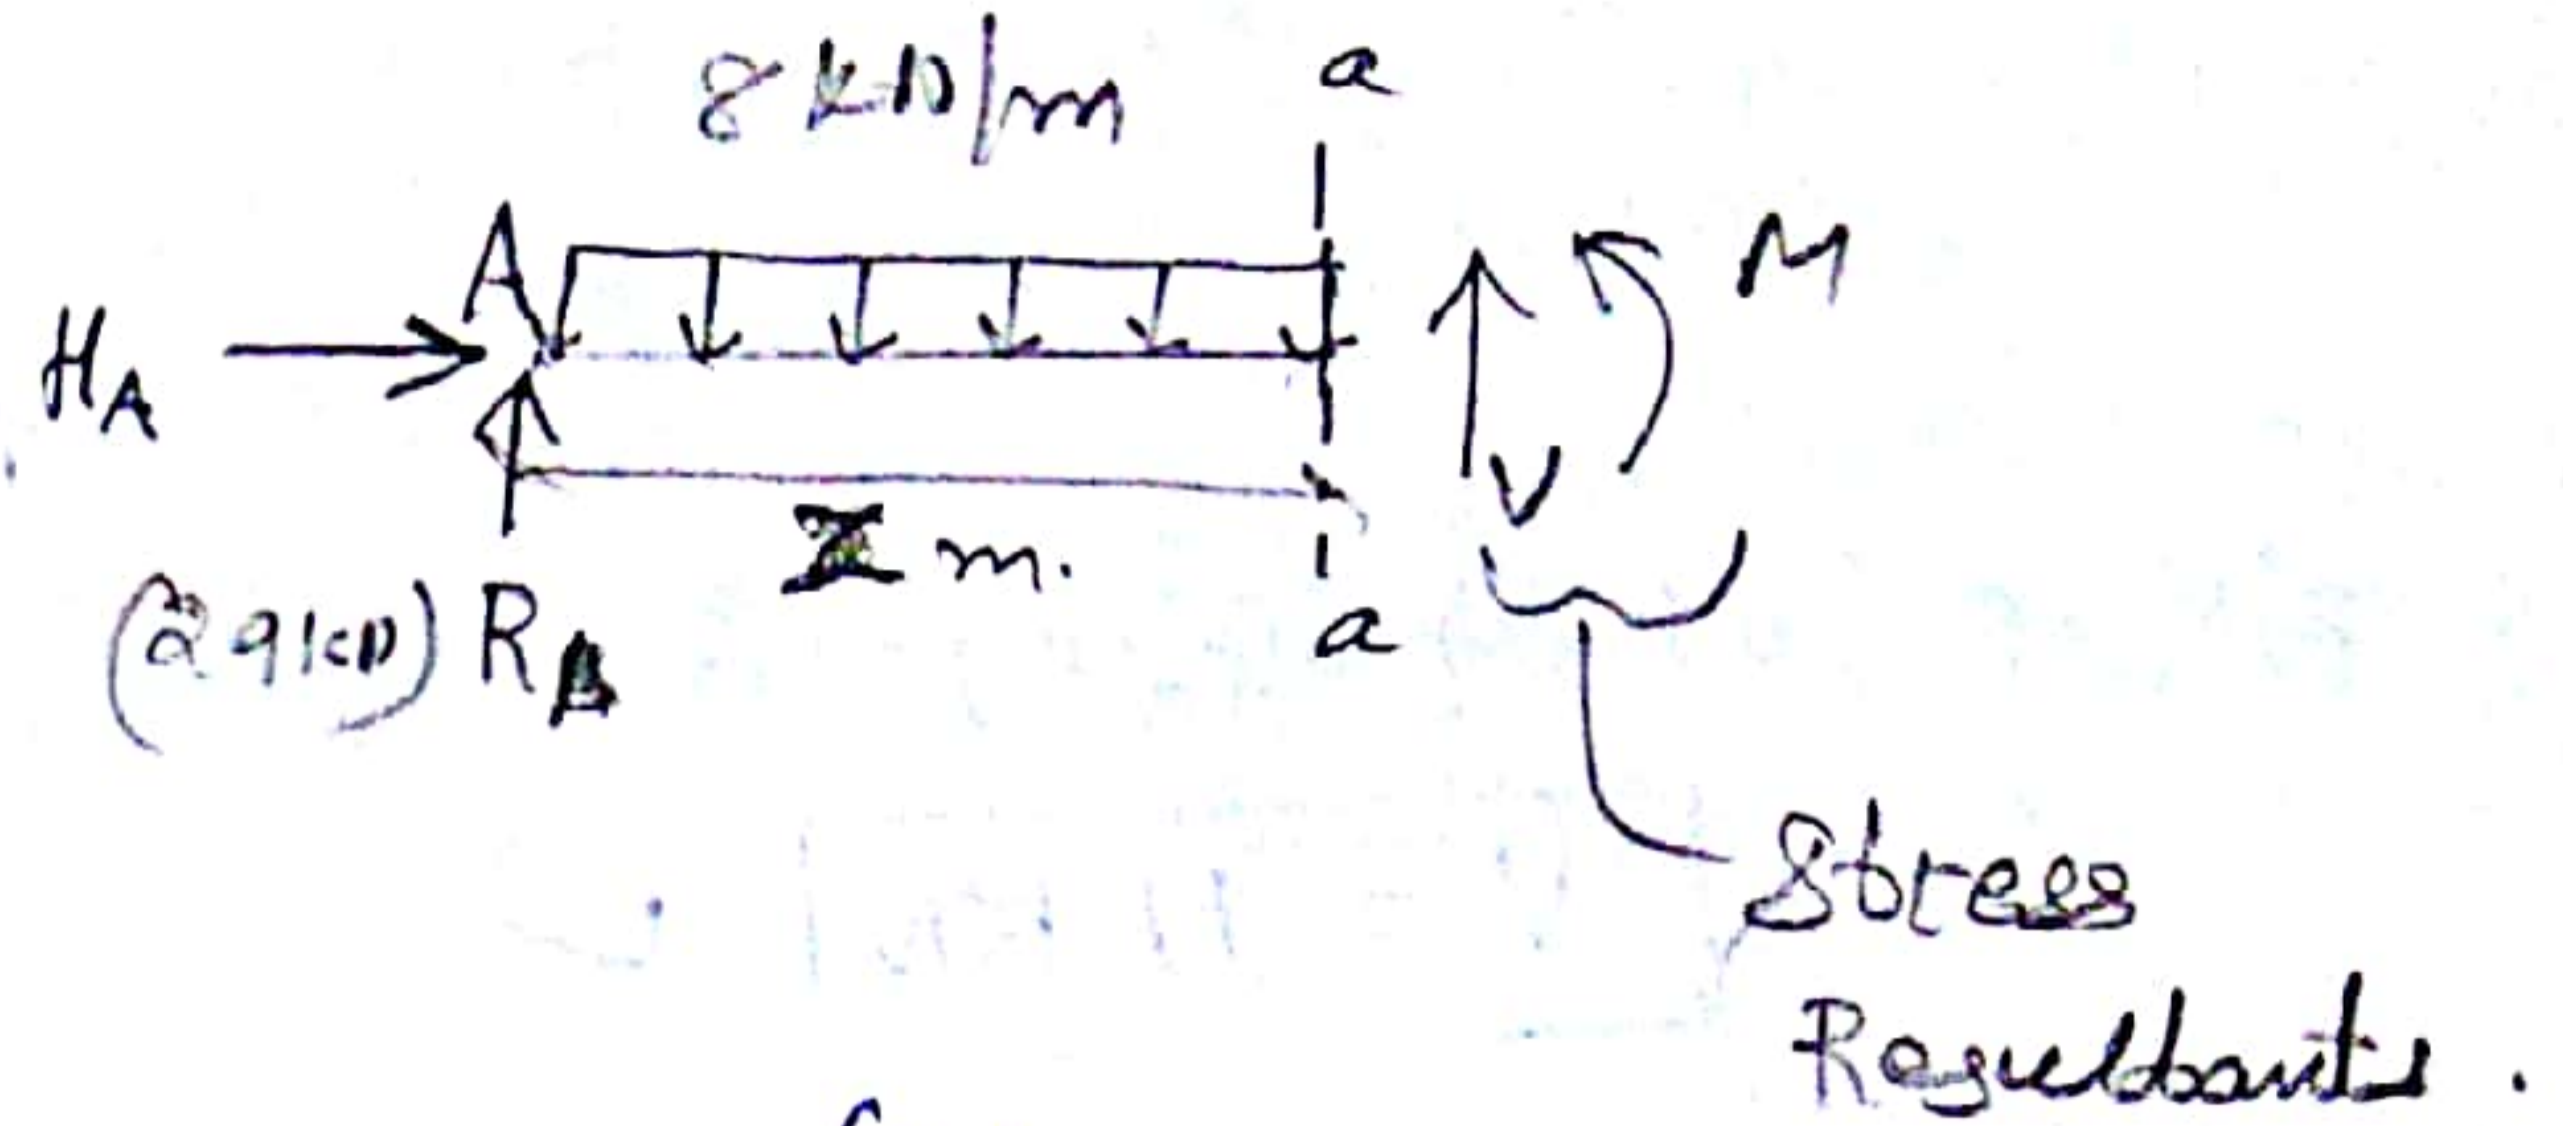 8 kN/m
a
A
M
H_A
V
x m.
(29 kN) R_A
a
Stress
Resultants.